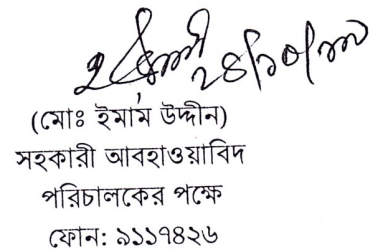 (মোঃ ইমাম উদ্দীন)
সহকারী আবহাওয়াবিদ
পরিচালকের পক্ষে
ফোন: ৯১১৭৪২৬